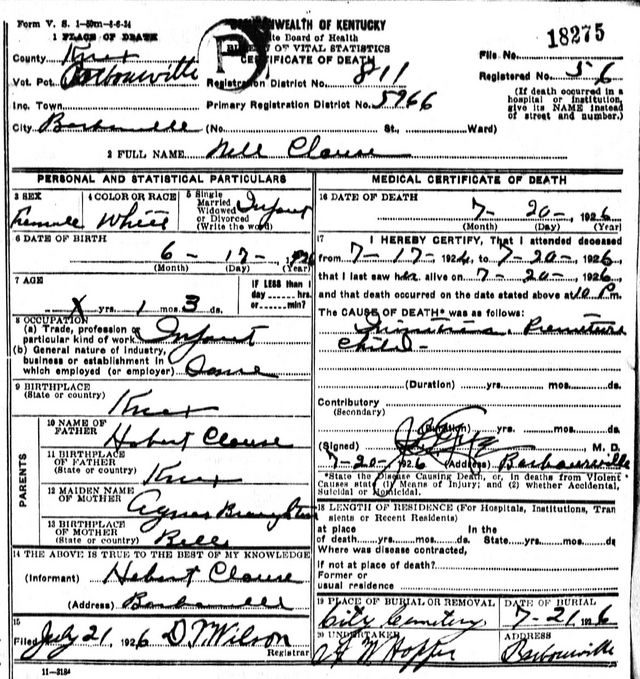 Form V. S. 1-50m-6-6-24
COMMONWEALTH OF KENTUCKY
State Board of Health
BUREAU OF VITAL STATISTICS
CERTIFICATE OF DEATH
18275
1 PLACE OF DEATH
County Knox
File No.
Vot. Pct. Barbourville
Registration District No. 811
Registered No. 56
Inc. Town
Primary Registration District No. 5966
(If death occurred in a
hospital or institution,
give its NAME instead
of street and number.)
City Barbourville (No. St., Ward)
2 FULL NAME Nell Clouse
PERSONAL AND STATISTICAL PARTICULARS
3 SEX
Female
4 COLOR OR RACE
White
5 Single
Married
Widowed
or Divorced
(Write the word)
Infant
6 DATE OF BIRTH
6 - 17 -, 1926
(Month) (Day) (Year)
7 AGE
x yrs. 1 mos. 3 ds.
IF LESS than 1
day hrs.
or min.?
8 OCCUPATION
(a) Trade, profession or
particular kind of work Infant
(b) General nature of industry,
business or establishment in
which employed (or employer) Same
9 BIRTHPLACE
(State or country) Knox
PARENTS
10 NAME OF
FATHER Hobert Clouse
11 BIRTHPLACE
OF FATHER
(State or country) Knox
12 MAIDEN NAME
OF MOTHER Agnes
13 BIRTHPLACE
OF MOTHER
(State or country) Bell
14 THE ABOVE IS TRUE TO THE BEST OF MY KNOWLEDGE
(Informant) Hobert Clouse
(Address) Barbourville
15
Filed July 21, 1926 D. T. Wilson
Registrar
11-3184
MEDICAL CERTIFICATE OF DEATH
16 DATE OF DEATH
7- 20-, 1926
(Month) (Day) (Year)
17 I HEREBY CERTIFY, That I attended deceased
from 7-17-1926, to 7-20-, 1926
that I last saw her alive on 7-20-, 1926
and that death occurred on the date stated above at 10 P.m.
The CAUSE OF DEATH* was as follows:
Premature
Child -
(Duration) yrs. mos. ds.
Contributory
(Secondary)
(Duration) yrs. mos. ds.
(Signed) M. D.
7-20-, 1926 (Address) Barbourville
*State the Disease Causing Death, or, in deaths from Violent
Causes state (1) Means of Injury; and (2) whether Accidental,
Suicidal or Homicidal.
18 LENGTH OF RESIDENCE (For Hospitals, Institutions, Tran
sients or Recent Residents)
at place In the
of death yrs. mos. ds. State yrs. mos. ds.
Where was disease contracted,
if not at place of death?
Former or
usual residence
19 PLACE OF BURIAL OR REMOVAL
City Cemetery
DATE OF BURIAL
7-21, 1926
20 UNDERTAKER
W Hopper
ADDRESS
Barbourville